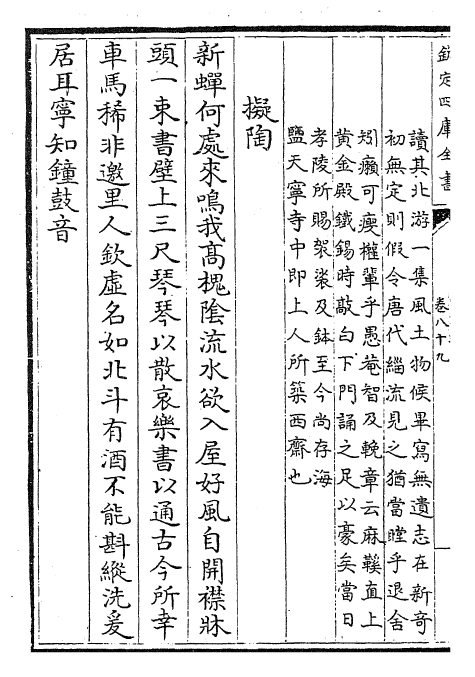 欽定四庫全書
卷八十九
讀其北游一集風土物候畢寫無遺志在新奇
初無定則假令唐代緇流見之猶當瞠乎退舍
矧癩可瘦權輩乎愚菴智及輓章云麻鞵直上
黄金殿鐵錫時敲白下門誦之足以豪矣當日
孝陵所賜袈裟及鉢至今尚存海
鹽天寧寺中即上人所築西齋也
擬陶
新蟬何處來鳴我高槐陰流水欲入屋好風自開襟牀
頭一束書壁上三尺琴琴以散哀樂書以通古今所幸
車馬稀非邀里人欽虛名如北斗有酒不能斟縱洗爰
居耳寧知鐘鼓音